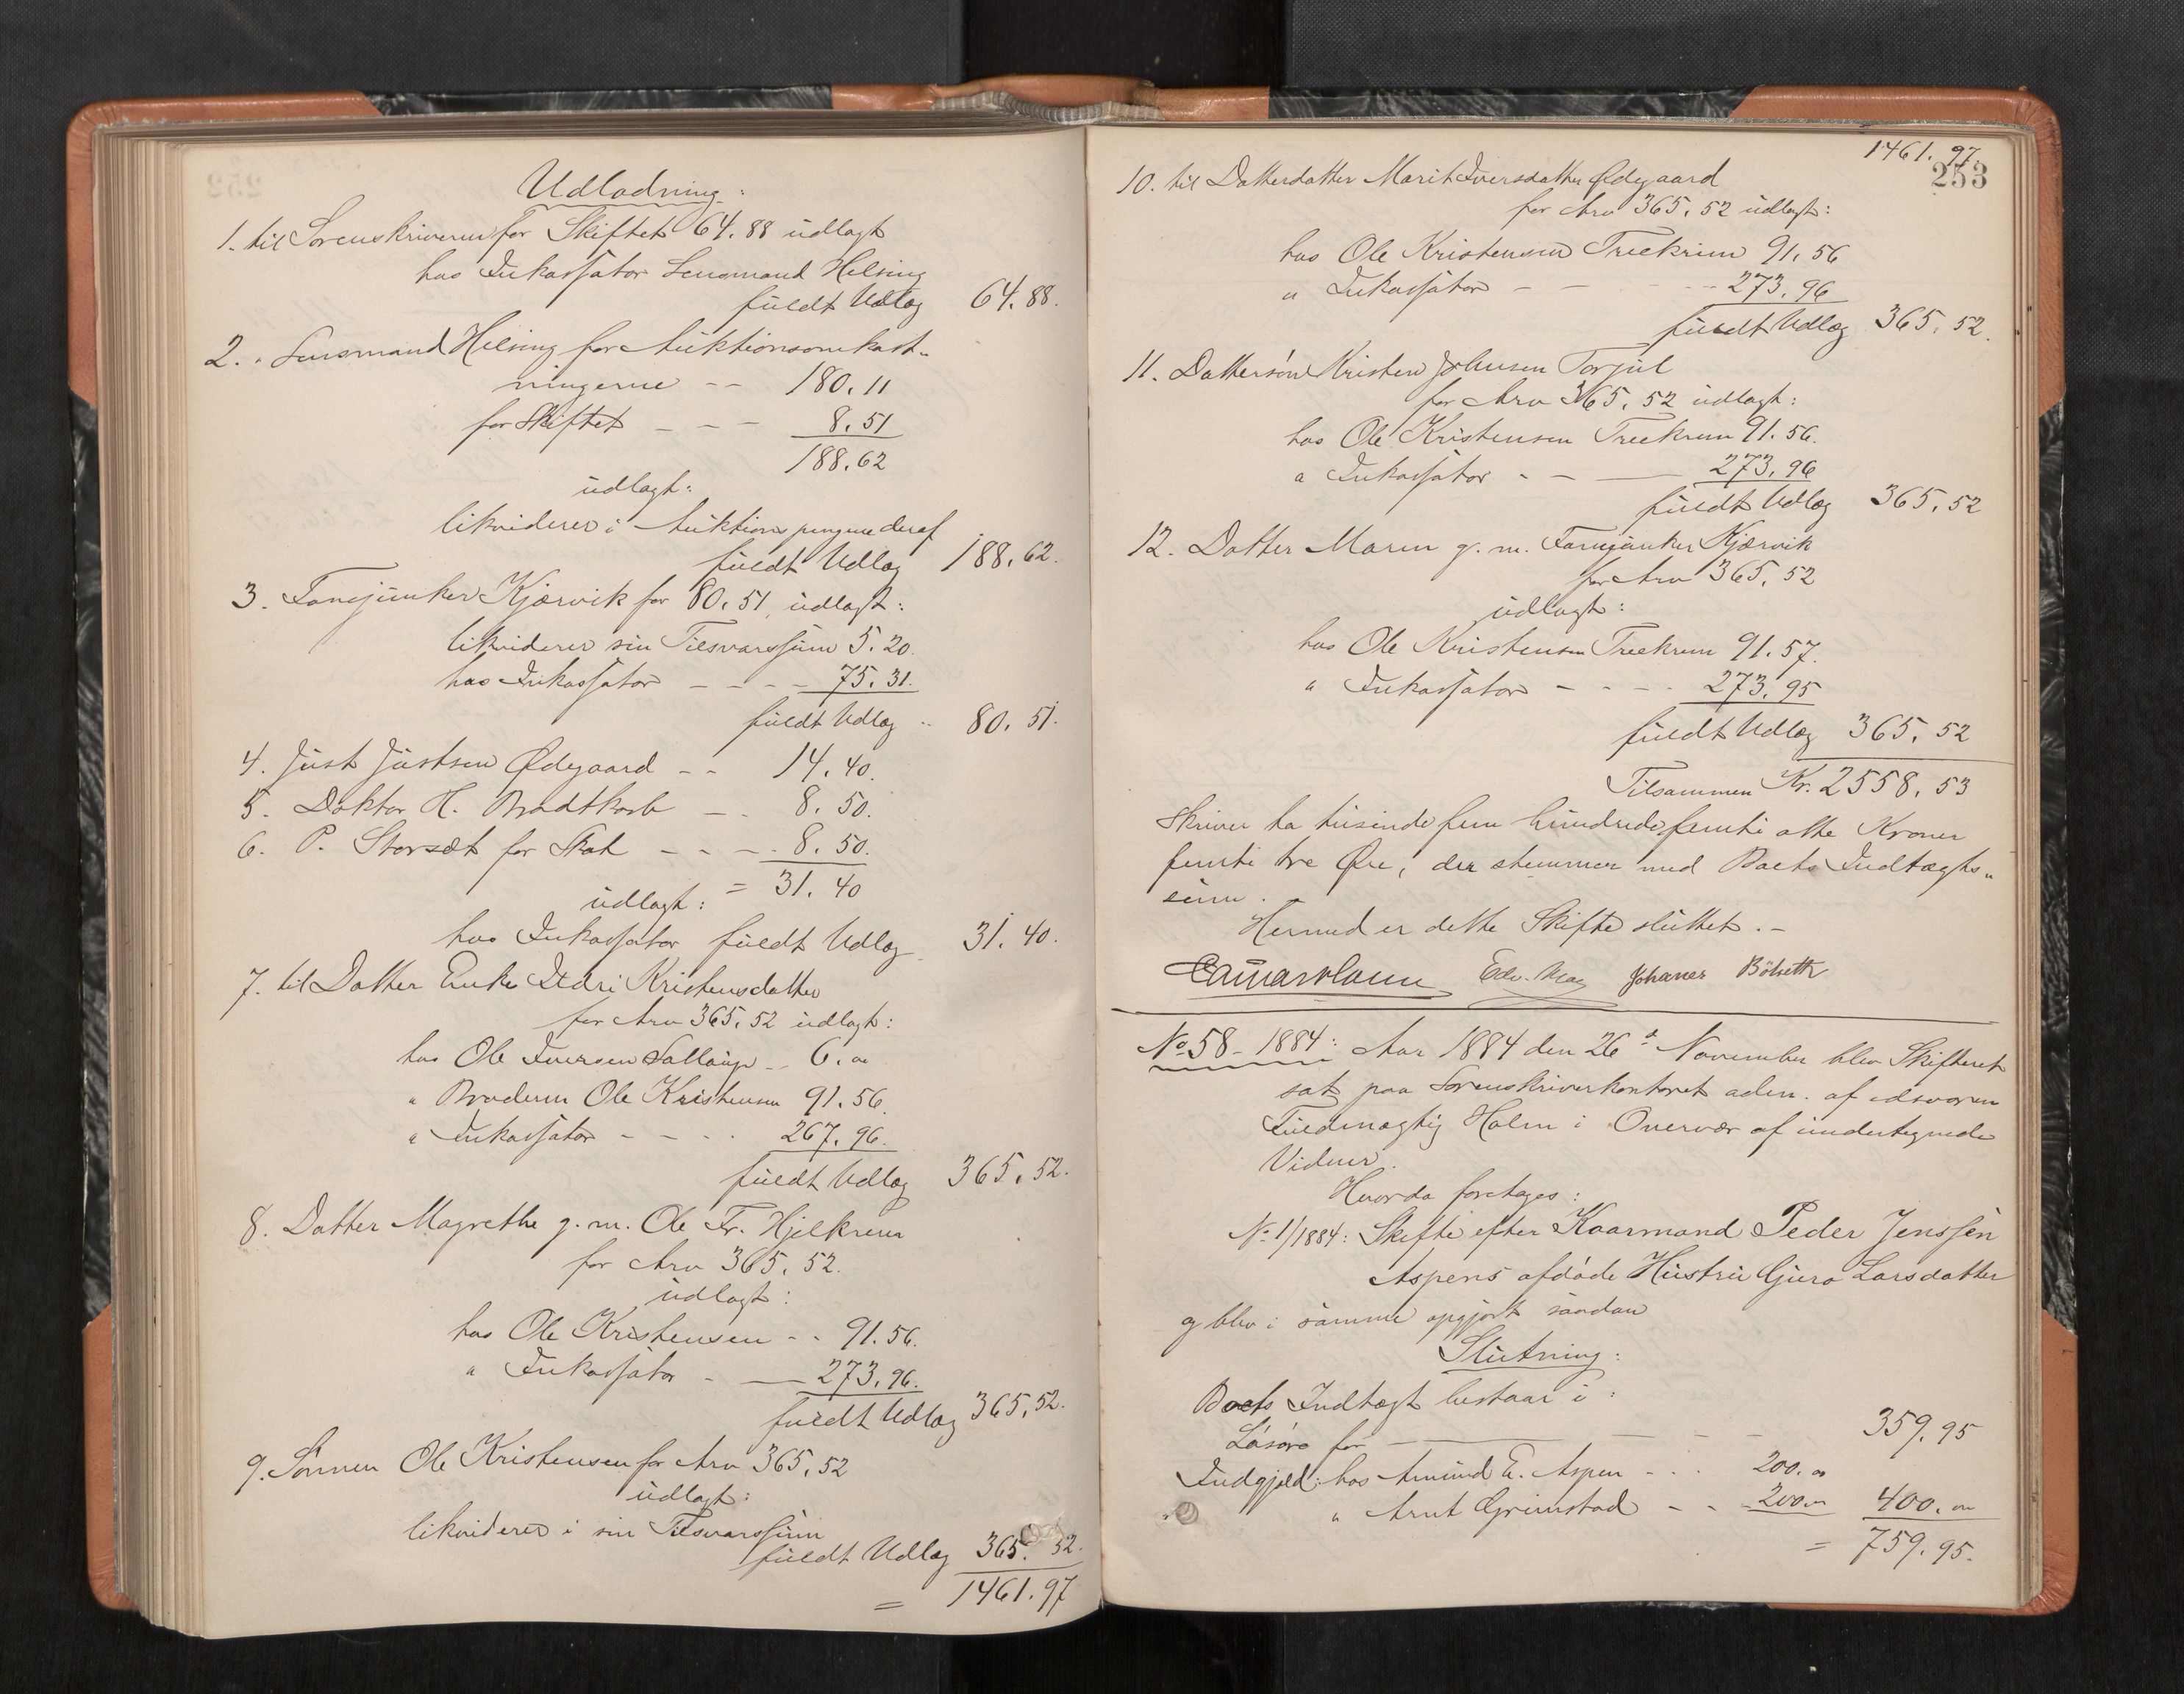 Udlodning:
1. til Sorenskriveren for Skiftet 64.88 udlagt
hos Inkassator Lensmand Helsing
fuldt Udlæg 64.88.
2. " Lensmand Helsing for Auktionsomkost-
ningerne -- 180.11
for Skiftet --- 8.51
188.62
udlagt:
likviderer i Auktionspengene deraf
fuldt Udlæg 188.62.
3. Fanejunker Kjørvik for 80.51 udlagt:
likviderer sin Tilsvarssum 5.20.
hos Inkassator ---- 75.31.
fuldt Udlæg .. 80.51.
4. Just Justsen Ødegaard -- 14.40.
5. Doktor H. Bradtkorb -. 8.50.
6. P. Storsæt for Skat --- 8.50.
= 31.40
udlagt:
hos Inkassator fuldt Udlæg 31.40.
7. til Datter Enke Kristensdatter
for Arv 365.52 udlagt:
hos Ole Iversen -- 6.00
" Broderen Ole Kristensen 91.56.
" Inkassator ---. 267.96.
fuldt Udlæg 365.52.
8. Datter Magrethe g.m. Ole Fr. Hjelkrem
for Arv 365.52.
udlagt:
hos Ole Kristensen -. 91.56.
" Inkassator - — 273.96.
fuldt Udlæg 365.52.
9. Sønnen Ole Kristensen for Arv 365.52
udlagt:
likviderer i sin Tilsvarssum
fuldt Udlæg 365.52.
= 1461.97
1461.97.
253
10. til Datterdatter Marit Iversdatter Ødegaard
for Arv 365.52 udlagt:
hos Ole Kristensen Treekrem 91.56
" Inkassator - - -- 273.96
fuldt Udlæg 365.52.
11. Dattersøn Kristen Johnsen Torjul
for Arv 365.52 udlagt:
hos Ole Kristensen Treekrem 91.56.
" Inkassator - - — 273.96
fuldt Udlæg 365.52
12. Datter Maren g.m. Fanejunker Kjørvik
for Arv 365.52
udlagt:
hos Ole Kristensen Treekrem 91.57.
" Inkassator - - - - 273.95
fuldt Udlæg 365.52
Tilsammen Kr. 2558.53
Skriver to tusinde fem hundrede femti otte Kroner
femti tre Øre, der stemmer med Boets Indtægts-
sum.
Hermed er dette Skifte sluttet. -
Edv. Johanes
No 58 - 1884: Aar 1884 den 26de November blev Skifteret
sat paa Sorenskriverkontoret adm. af edsvoren
Fuldmægtig Holm i Overvær af undertegnede
Vidner.
Hvorda foretages:
No 1/1884: Skifte efter Kaarmand Peder Jenssen
Aspens afdøde Hustru Guro Larsdatter
og blev i samme opgjort saadan
Slutning:
Boets Indtægt bestaar i:
Løsøre for — — - - 359.95
Indgjæld: hos Amund E. Aspen - - . 200.00
" Arnt Grimstad - - 200.00 400.00
= 759.95.